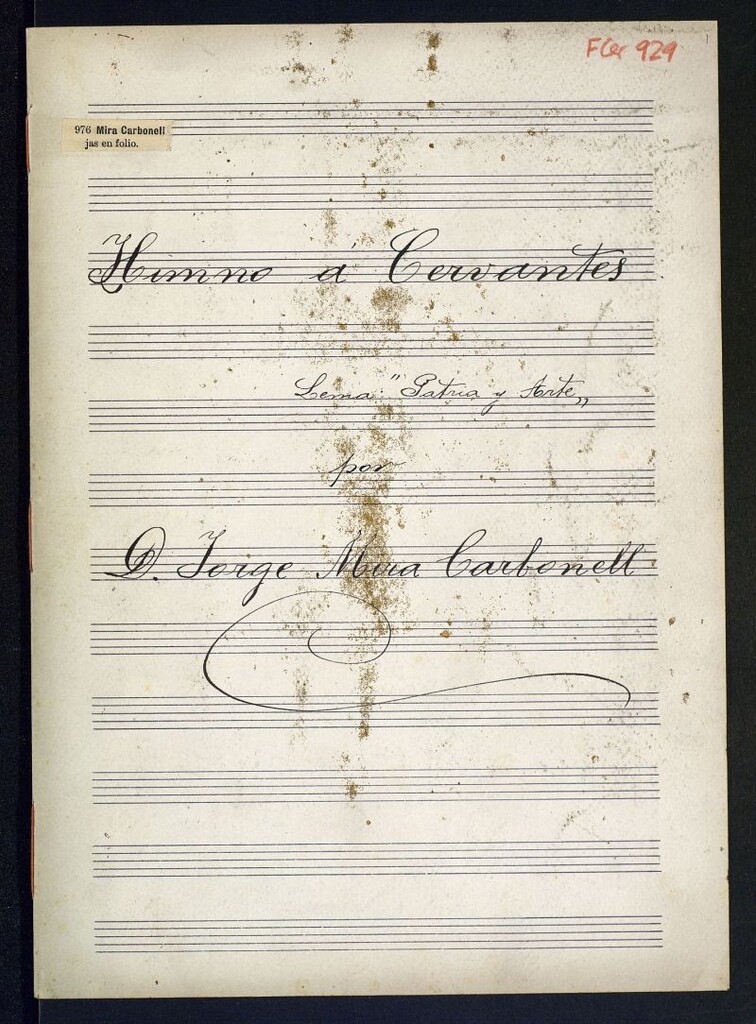 FCer 929
976 Mira Carbonell
jas en folio.
Himno á Cervantes
Lema: "Patria y Arte„
por
D. Jorge Mira Carbonell